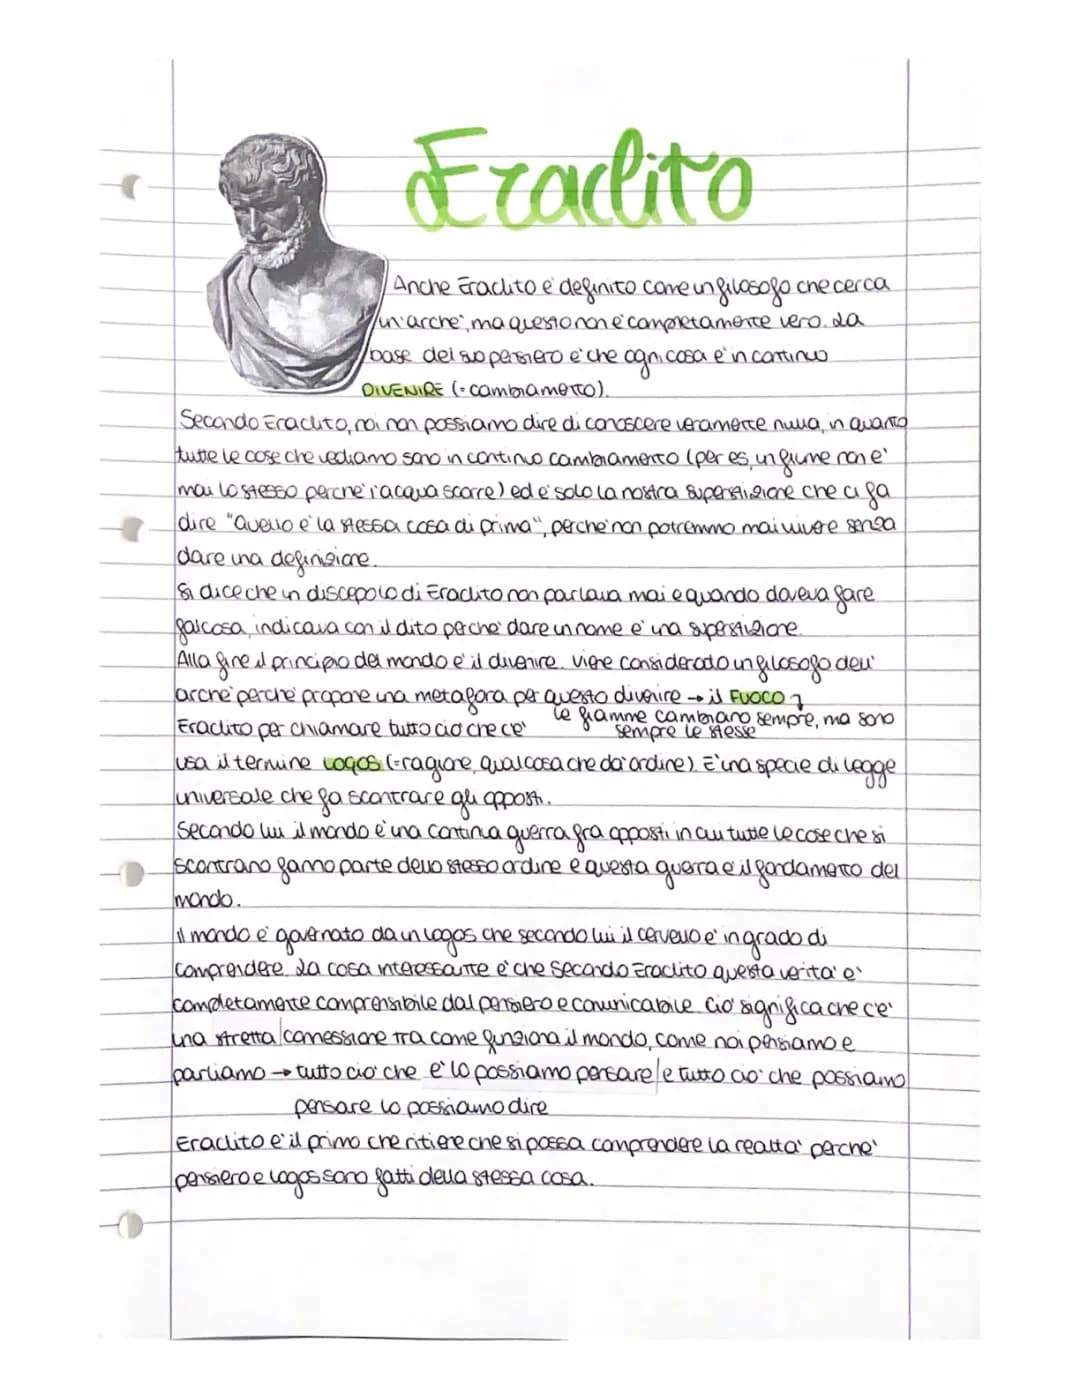 Eraclito
Anche Eraclito e' definito come un filosofo che cerca
un'arche', ma questo non e' completamente vero. La
base del suo pensiero e' che ogni cosa e' in continuo
DIVENIRE (= cambiamento).
Secondo Eraclito, noi non possiamo dire di conoscere veramente nulla, in quanto
tutte le cose che vediamo sono in continuo cambiamento (per es, un fiume non e'
mai lo stesso perche' l'acqua scorre) ed e' solo la nostra superstizione che ci fa
dire "Quello e' la stessa cosa di prima", perche' non potremmo mai vivere senza
dare una definizione.
Si dice che un discepolo di Eraclito non parlava mai e quando doveva fare
qalcosa, indicava con il dito perche' dare un nome e' una superstizione.
Alla fine il principio del mondo e' il divenire. Viene considerato un filosofo dell'
arche' perche' propone una metafora per questo divenire → il FUOCO
le fiamme cambiano sempre, ma sono
sempre le stesse
Eraclito per chiamare tutto cio che c'e'
usa il termine LOGOS (=ragione, qualcosa che da' ordine). E' una specie di legge
universale che fa scontrare gli opposti.
Secondo lui il mondo e' una continua guerra fra opposti in cui tutte le cose che si
scontrano fanno parte dello stesso ordine e questa guerra e il fondamento del
mondo.
Il mondo e' governato da un logos che secondo lui il cervello e' in grado di
comprendere. La cosa interessante e' che secondo Eraclito questa verita' e'
completamente comprensibile dal pensiero e comunicabile. Cio' significa che c'e'
una stretta connessione tra come funziona il mondo, come noi pensiamo e
parliamo → tutto cio' che e' lo possiamo pensare e tutto cio' che possiamo
pensare lo possiamo dire
Eraclito e' il primo che ritiene che si possa comprendere la realta' perche'
pensiero e logos sono fatti della stessa cosa.